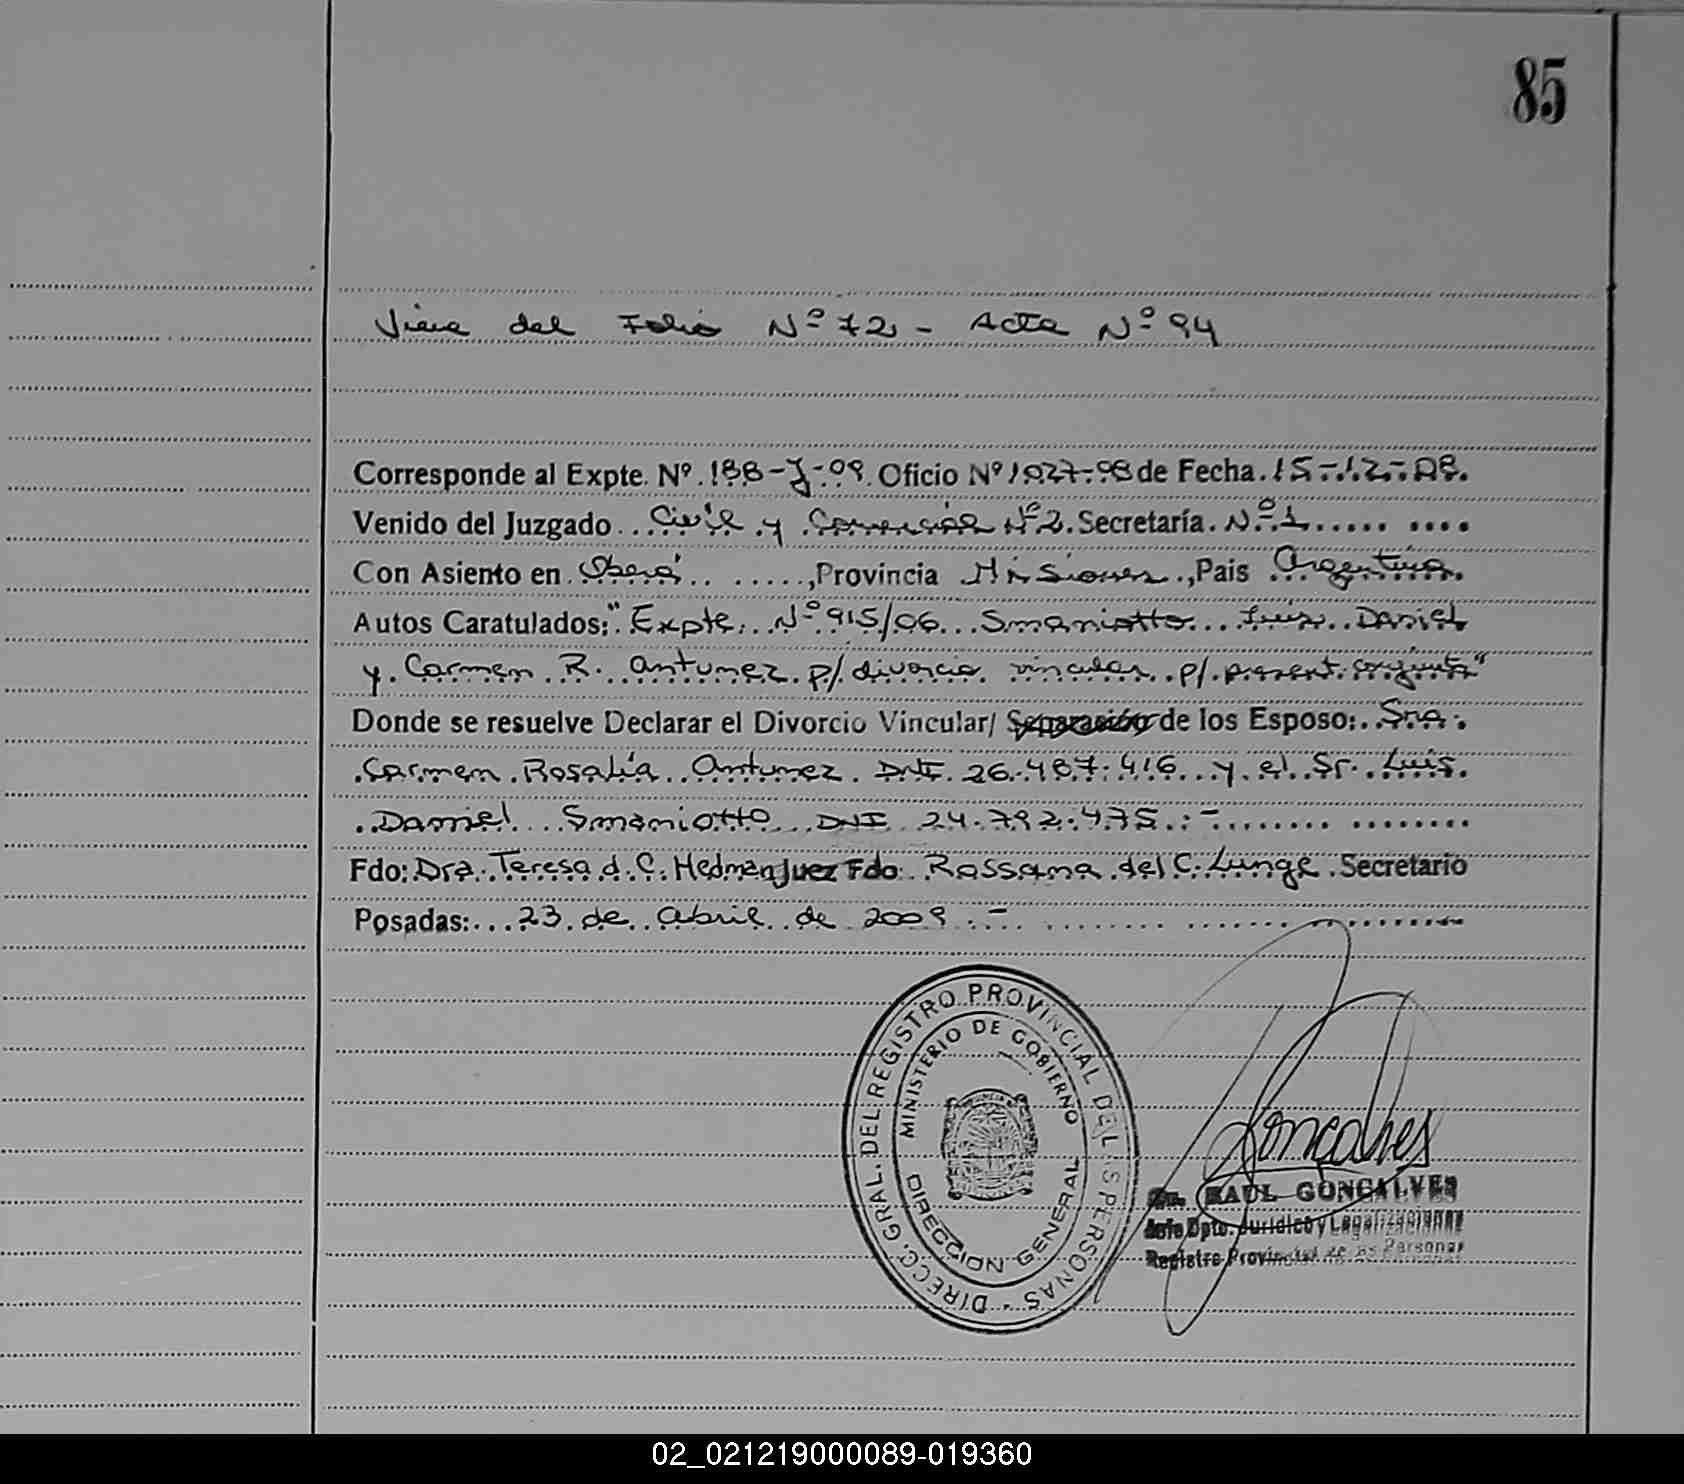 85
Viene del Folio Nº 72 - Acta Nº 94
Corresponde al Expte. Nº 188-J-09 Oficio Nº 1027-08 de Fecha 15-12-08.
Venido del Juzgado Civil y Comercial Nº 2. Secretaría. Nº 1
Con Asiento en Oberá, Provincia Misiones, Pais Argentina.
Autos Caratulados: "Expte. Nº 915/06 Smaniotto Luis Daniel
y Carmen R. Antunez p/ divorcio vincular p/ present. conjunta"
Donde se resuelve Declarar el Divorcio Vincular/ Separación de los Esposo: Sra.
Carmen Rosalía Antunez DNI 26.487.416 y el Sr. Luis
Daniel Smaniotto DNI 24.792.475.-
Fdo: Dra. Teresa d. C. Hedman Juez Fdo: Rossana del C. Lunge Secretario
Posadas: 23 de abril de 2009.-
DIRECC. GRAL. DEL REGISTRO PROVINCIAL DE LAS PERSONAS
MINISTERIO DE GOBIERNO
DIRECCION GENERAL
Goncalves
RAUL GONCALVES
Jefe Dpto. Juridico y Legalizaciones
Registro Provincial de las Personas
02_021219000089-019360